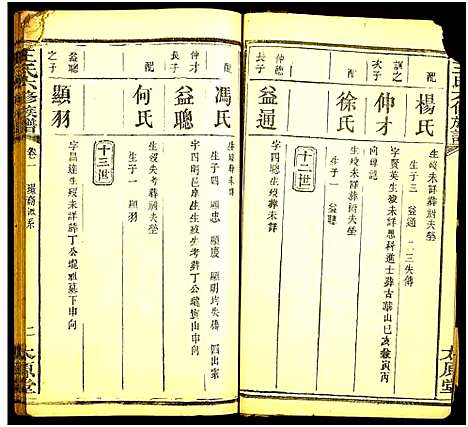 配
楊氏
生歿未詳葬祔夫塋
生子三 益通 二三失傳
次子
仲才
字賢英生歿未詳恩科進士葬古塘山巳亥兼丙
向碑誌
配
徐氏
生歿未詳葬祔夫塋
生子一 益聰
十二世
益通
字四聰生歿未詳
仲德
長子
益聰
字四明邑庠生生歿失考葬丁公壠
配
馮氏
生歿失詳葬
生子四 顯忠 顯慶 顯明均失傳 四出家
益聰
之子
配
何氏
生歿失考葬祔夫塋
生子一 顯羽
十三世
顯羽
字昌達生歿未詳葬丁公壠祖墓下丁向
王氏六修族譜
卷一
太原堂
太原堂